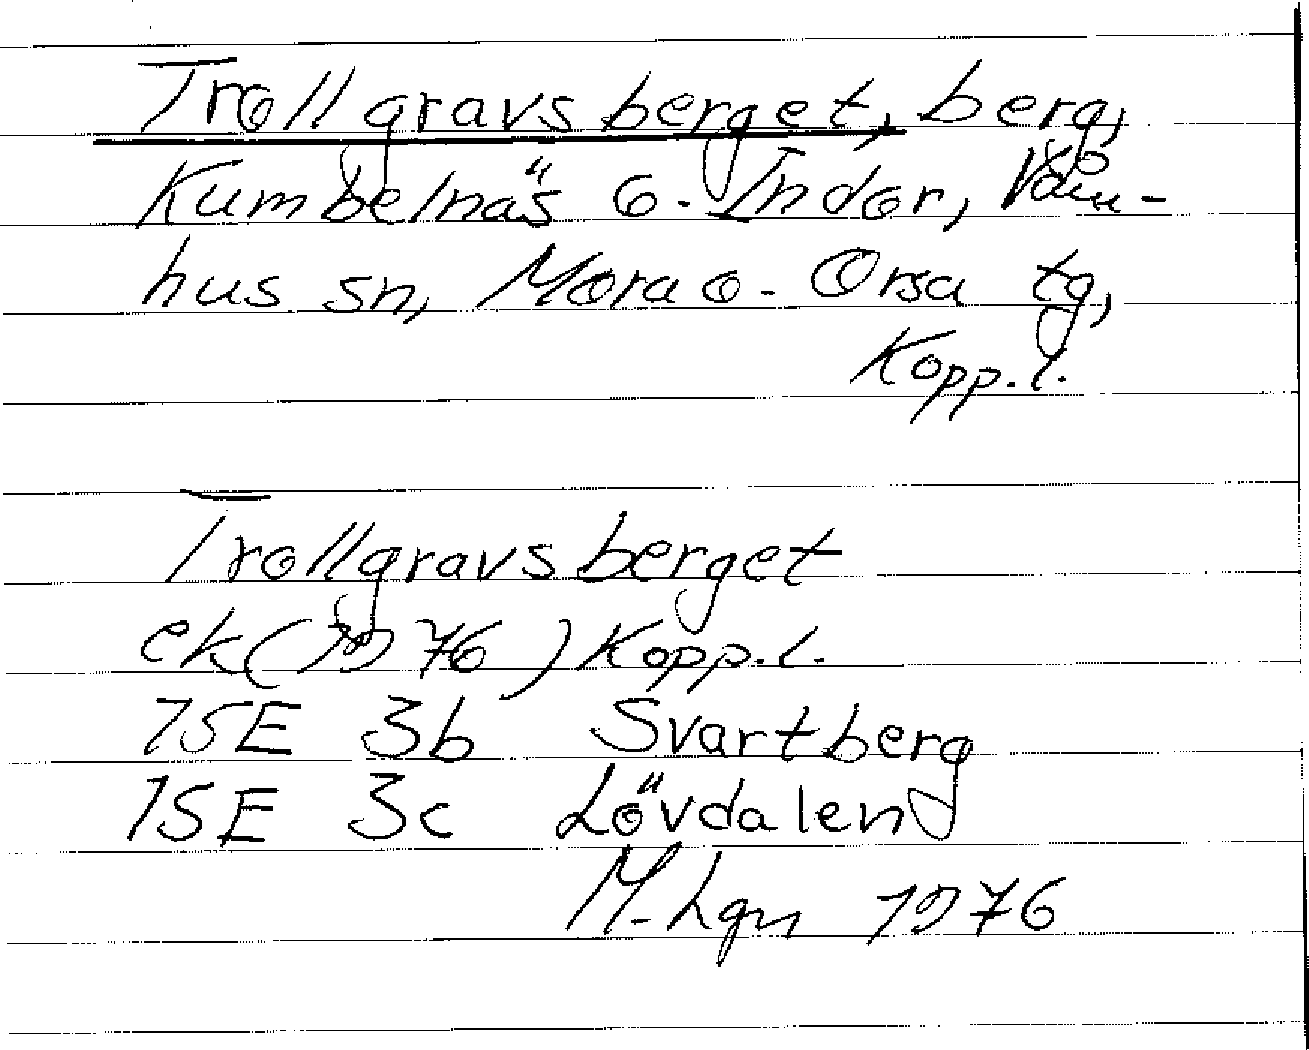 Trollgravsberget, berg,
Kumbelnäs o. Indor, Våm-
hus sn, Mora o. Orsa tg,
Kopp.l.
Trollgravsberget
ek(1976) Kopp.l.
15E 3b Svartberg
15E 3c Lövdalen
M. Lgn 1976